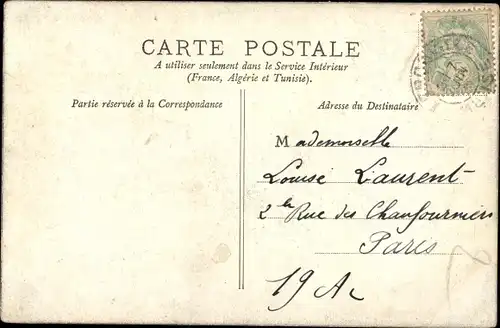 CARTE POSTALE
A utiliser seulement dans le Service Intérieur
(France, Algérie et Tunisie).
Partie réservée à la Correspondance
Adresse du Destinataire
Mademoiselle
Louise Laurent
Rue des Chaufourniers
Paris
19 Ar